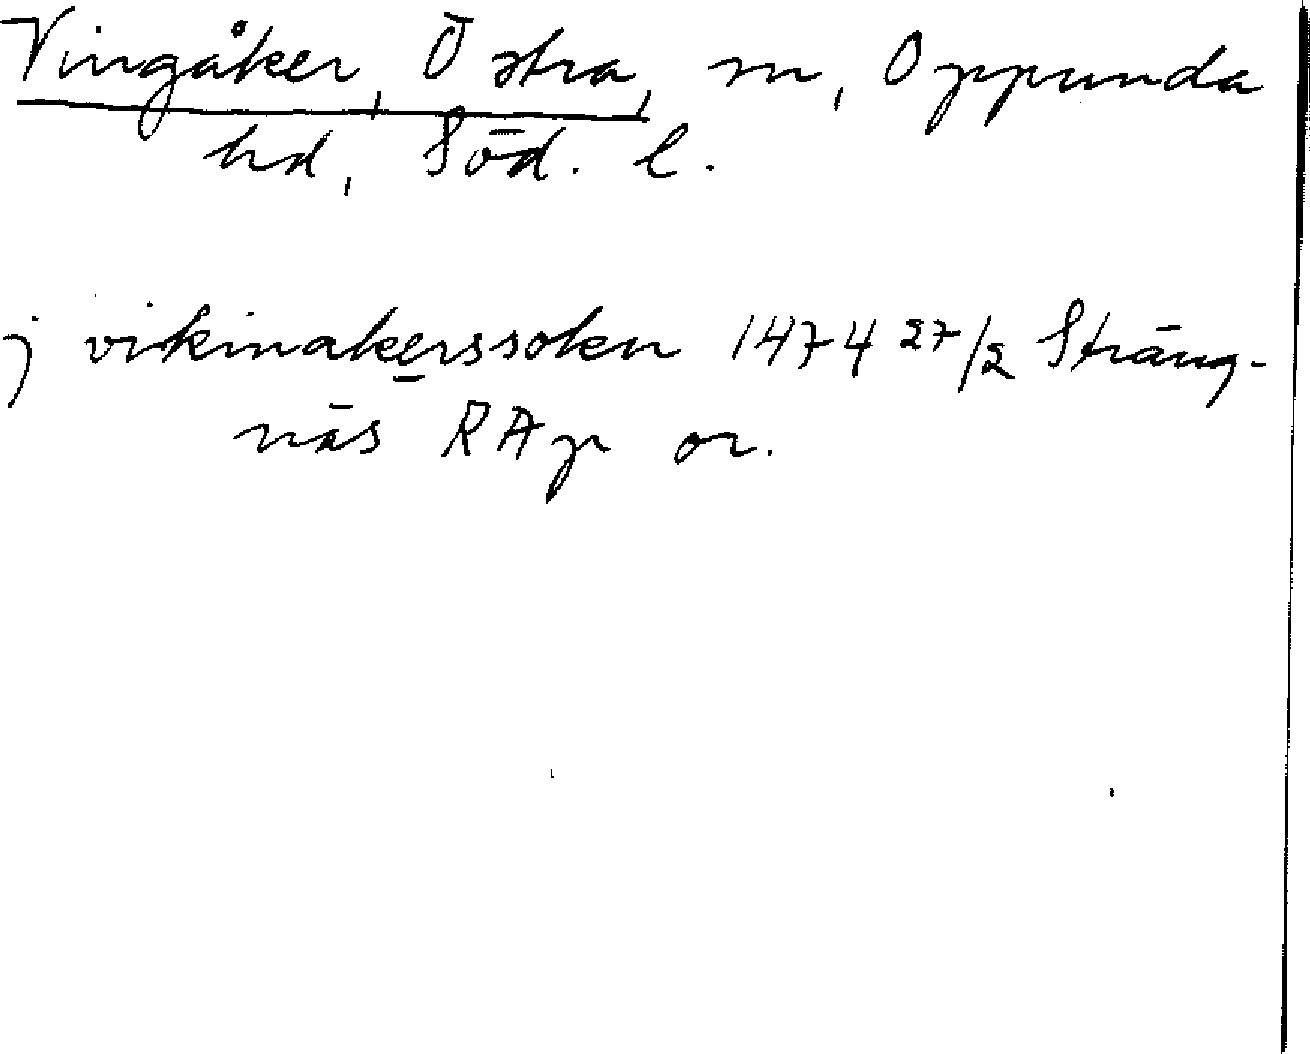 Vingåker, Östra, sn, Oppunda
hd, Söd. l.
j vikinakerssoken 1474 27/2 Sträng-
näs RAp or.